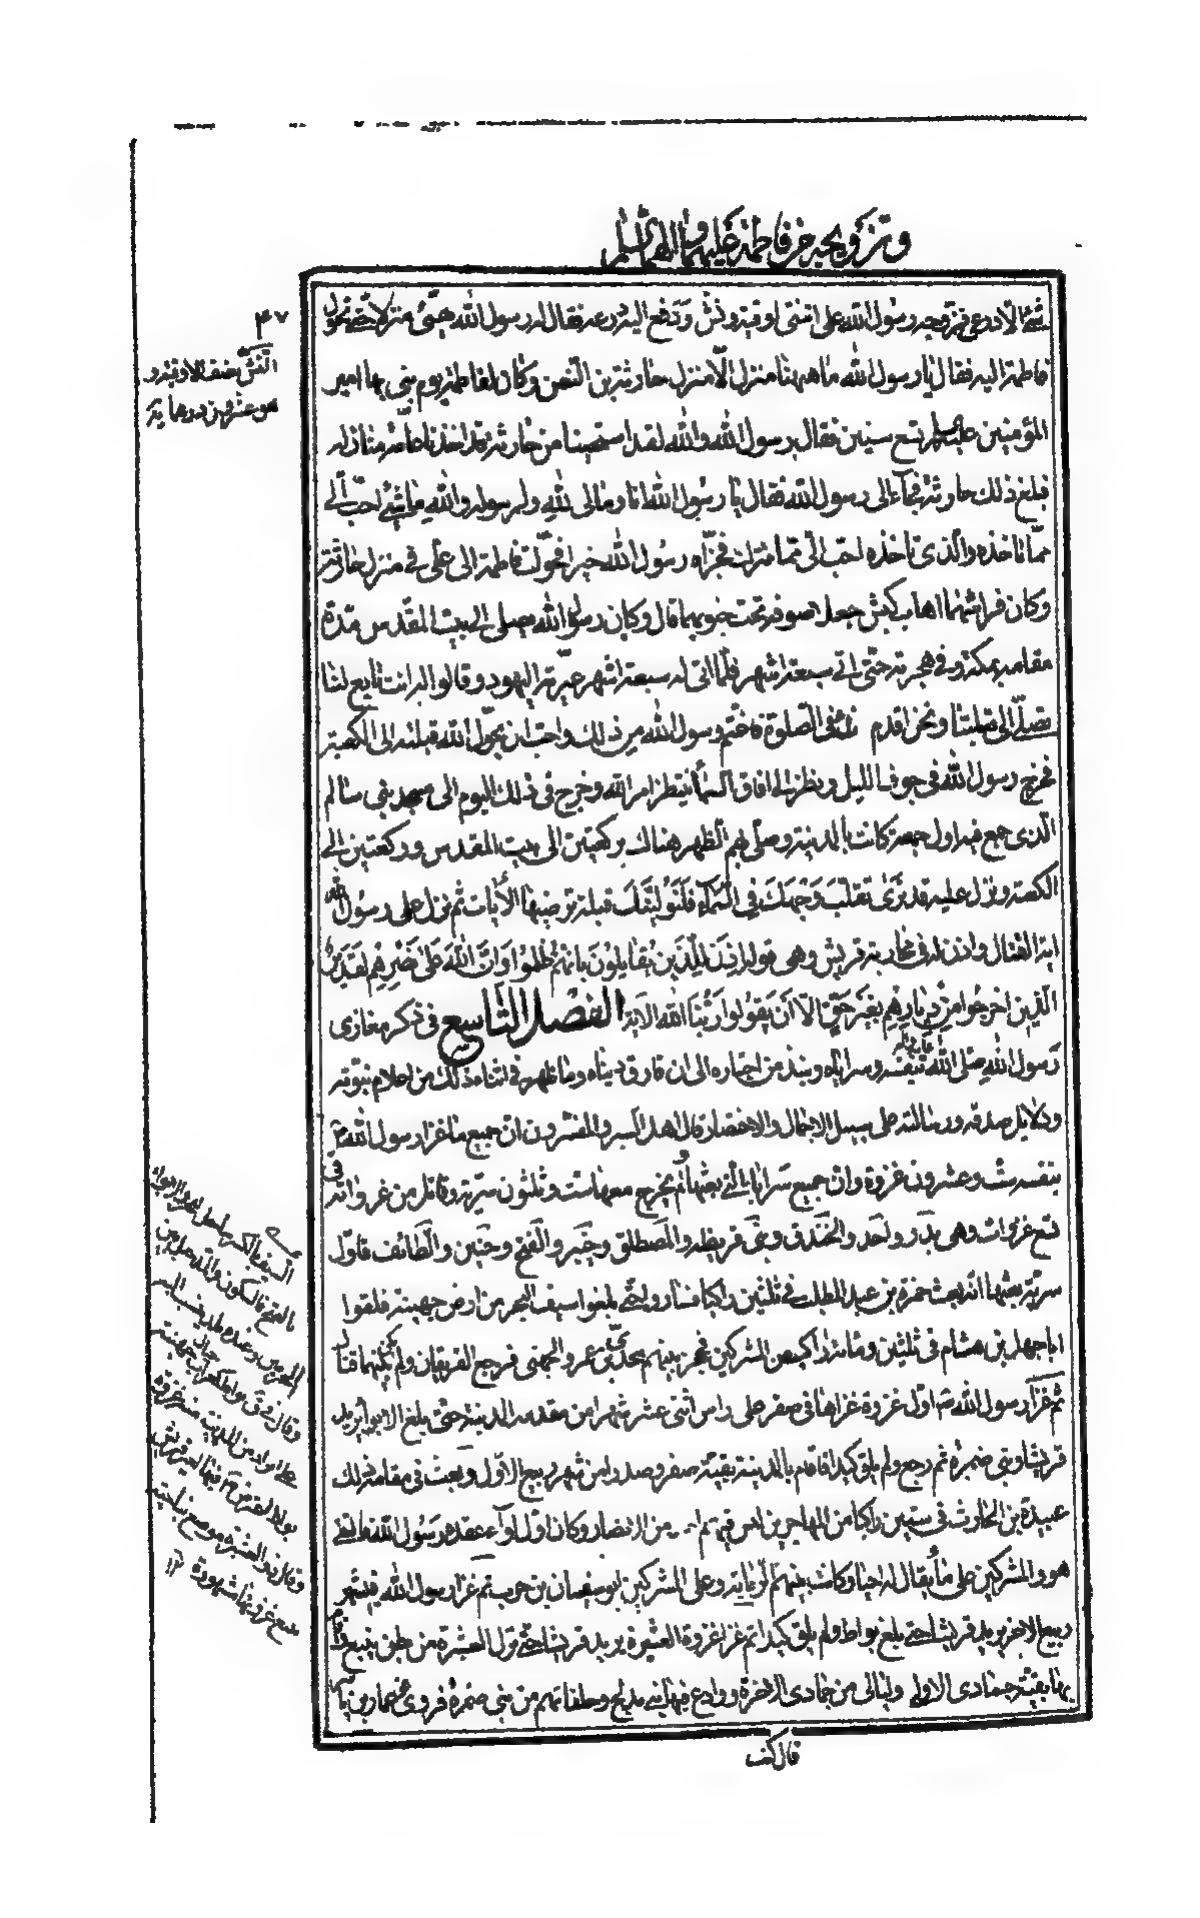 وتزويجه من فاطمة عليهما السلام
٤٧
شيء الا درعي فزوجه رسول الله على اثنتي اوقية ونش ودفع اليه درعه فقال له رسول الله هيئ منزلا حتى تحول
فاطمة اليه فقال يا رسول الله ما ههنا منزل الا منزل حارثة بن النعمن وكان لفاطمة يوم بنى بها امير
المؤمنين عليه السلام تسع سنين فقال رسول الله والله لقد استحيينا من حارثة قد اخذنا عامة منازله
فبلغ ذلك حارثة فجاء الى رسول الله فقال يا رسول الله انا ومالى لله ولرسوله والله ما شيء احب الي
مما تاخذه والذى تاخذه احب الي مما تترك فجزاه رسول الله خيرا فحولت فاطمة الى علي في منزل حارثة
وكان فراشهما اهاب كبش جعلا صوفه تحت جنوبهما قال وكان رسول الله يصلي الى بيت المقدس مدة
مقامه بمكة وفي هجرته حتى اتى سبعة اشهر فلما اتى له سبعة اشهر عيرته اليهود وقالوا له انت تابع لنا
تصلي الى قبلتنا ونحن اقدم منك في الصلوة فاغتم رسول الله من ذلك واحب ان يحول الله قبلته الى الكعبة
فخرج رسول الله في جوف الليل ونظر الى افاق السماء ينتظر امر الله وخرج في ذلك اليوم الى مسجد بني سالم
الذى جمع فيه اول جمعة كانت بالمدينة وصلى بهم الظهر هناك بركعتين الى بيت المقدس وركعتين الى
الكعبة ونزل عليه قد نرى تقلب وجهك في السماء فلنولينك قبلة ترضيها الآيات ثم نزل على رسول الله
اية القتال واذن له في محاربة قريش وهى قوله اذن للذين يقاتلون بانهم ظلموا وان الله على نصرهم لقدير
الذين اخرجوا من ديارهم بغير حق الا ان يقولوا ربنا الله الآية الفصل التاسع في ذكر مغازى
رسول الله صلى الله عليه واله بنفسه وسراياه ونبذ من اخباره الى ان فارق دنياه وما ظهر في اثناء ذلك من اعلام نبوته
ودلايل صدقه ورسالته على سبيل الاجمال والاختصار قال اهل السير والمفسرون ان جميع ما غزا رسول الله ص
بنفسه ست وعشرون غزوة وان جميع سراياه التي بعثها ولم يخرج معها ست وثلثون سرية وقاتل من غزواته في
تسع غزوات وهى بدر واحد والخندق وبني قريظه والمصطلق وخيبر والفتح وحنين والطائف فاول
سرية بعثها انه بعث حمزة بن عبد المطلب في ثلثين راكبا فساروا حتى بلغوا سيف البحر من ارض جهينة فلقوا
ابا جهل بن هشام في ثلثين ومائة راكب من المشركين فحجز بينهم مجدي بن عمرو الجهني فرجع الفريقان ولم يكن بينهما قتال
ثم غزا رسول الله ص اول غزوة غزاها في صفر على راس اثنى عشر شهرا من مقدمه المدينة حتى بلغ الابواء يريد
قريشا وبنى ضمرة ثم رجع ولم يلق كيدا فاقام بالمدينة بقية صفر وصدرا من شهر ربيع الاول وبعث في مقامه ذلك
عبيدة بن الحارث في ستين راكبا من المهاجرين ليس فيهم احد من الانصار وكان اول لواء عقده رسول الله فالتقى
هو والمشركين على ماء يقال له احيا وكانت بينهم الرماية وعلى المشركين ابو سفيان بن حرب ثم غزا رسول الله في شهر
ربيع الاخر يريد قريشا حتى بلغ بواط ولم يلق كيدا ثم غزا غزوة العشيرة يريد قريشا حتى نزل العشيرة من بطن ينبع واقام
بها بقية جمادى الاولى وليالى من جمادى الاخرة ووادع فيها بني مدلج وحلفائهم من بني ضمرة فروي عن عمار بن ياسر
قال كنت
النش نصف الاوقية و
هو عشرون درهما
السيف بالكسر ساحل البحر